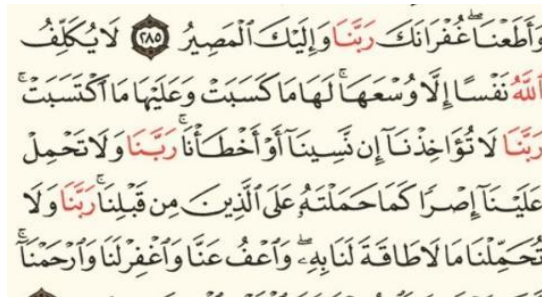 وَأَطَعْنَاۖ غُفْرَانَكَ رَبَّنَا وَإِلَيْكَ ٱلْمَصِيرُ ٢٨٥ لَا يُكَلِّفُ
ٱللَّهُ نَفْسًا إِلَّا وُسْعَهَاۚ لَهَا مَا كَسَبَتْ وَعَلَيْهَا مَا ٱكْتَسَبَتْۗ
رَبَّنَا لَا تُؤَاخِذْنَآ إِن نَّسِينَآ أَوْ أَخْطَأْنَاۚ رَبَّنَا وَلَا تَحْمِلْ
عَلَيْنَآ إِصْرًا كَمَا حَمَلْتَهُۥ عَلَى ٱلَّذِينَ مِن قَبْلِنَاۚ رَبَّنَا وَلَا
تُحَمِّلْنَا مَا لَا طَاقَةَ لَنَا بِهِۦۖ وَٱعْفُ عَنَّا وَٱغْفِرْ لَنَا وَٱرْحَمْنَآۚ